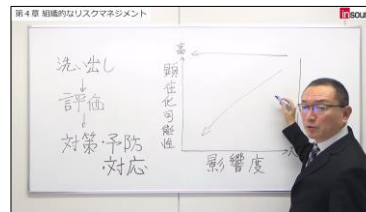 第4章 組織的なリスクマネジメント
insou
洗い出し
↓
評価
↓
対策・予防
・対応
高
顕在化可能性
影響度
大